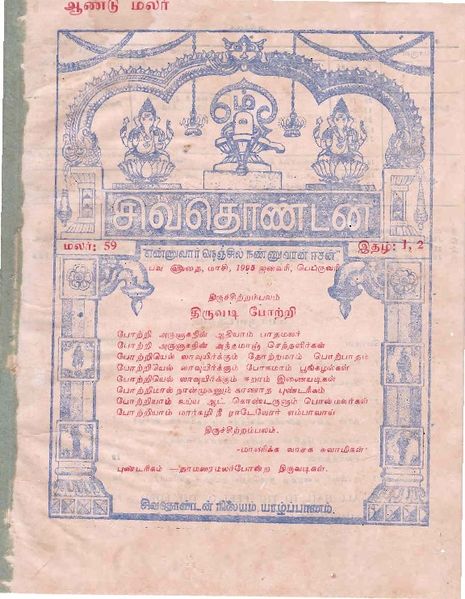 ஆண்டு மலர்
ஓம்
சிவதொண்டன்
மலர்: 59
இதழ்: 1, 2
"என்னுவார் நெஞ்சில் நண்ணுவான் ஈசன்"
பவ ௵ தை, மாசி, 1995 ஜனவரி, பெப்ருவரி
திருச்சிற்றம்பலம்
திருவடி போற்றி
போற்றி அருளுகநின் ஆதியாம் பாதமலர்
போற்றி அருளுகநின் அந்தமாஞ் செந்தளிர்கள்
போற்றியெல் லாவுயிர்க்கும் தோற்றமாம் பொற்பாதம்
போற்றியெல் லாவுயிர்க்கும் போகமாம் பூங்கழல்கள்
போற்றியெல் லாவுயிர்க்கும் ஈறாம் இணையடிகள்
போற்றிமால் நான்முகனும் காணாத புண்டரிகம்
போற்றியாம் உய்ய ஆட் கொண்டருளும் பொன்மலர்கள்
போற்றியாம் மார்கழி நீ ராடேலோர் எம்பாவாய்
திருச்சிற்றம்பலம்.
-மாணிக்க வாசக சுவாமிகள்
புண்டரிகம் —தாமரைமலர்போன்ற திருவடிகள்.
சிவதொண்டன் நிலையம் யாழ்ப்பாணம்.